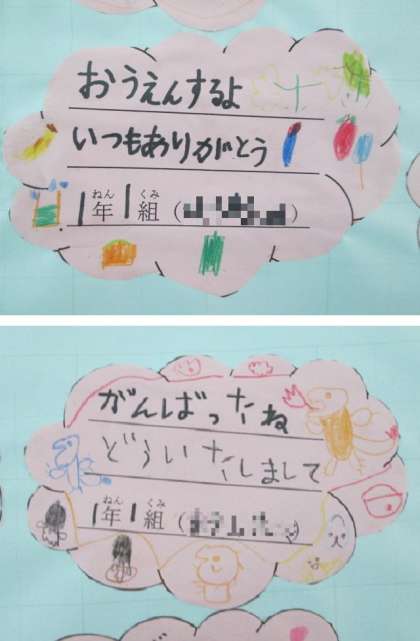 おうえんするよ
いつもありがとう
1年1組（
ねん くみ
がんばったね
どういたしまして
1年1組（
ねん くみ